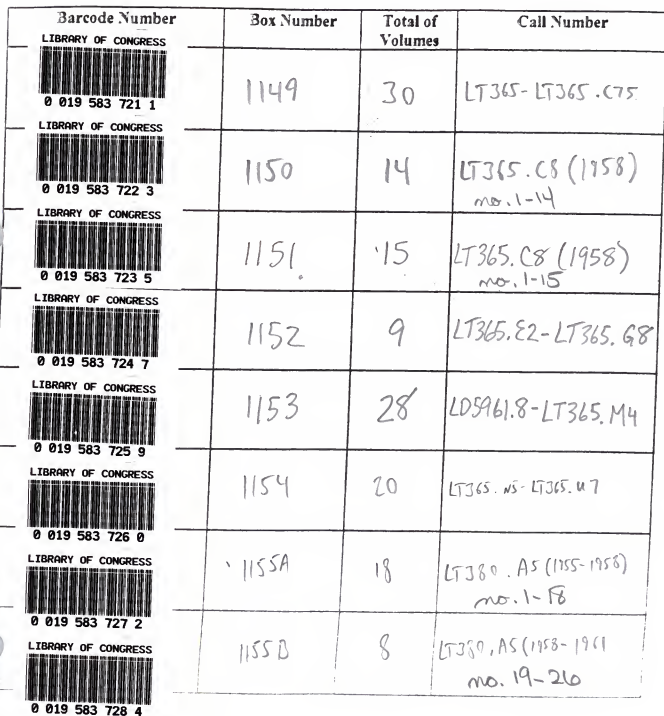 Barcode Number Box Number Total of Volumes Call Number
LIBRARY OF CONGRESS
0 019 583 721 1
1149 30 LT365-LT365.C75
LIBRARY OF CONGRESS
0 019 583 722 3
1150 14 LT365.C8 (1958)
no. 1-14
LIBRARY OF CONGRESS
0 019 583 723 5
1151 15 LT365.C8 (1958)
no. 1-15
LIBRARY OF CONGRESS
0 019 583 724 7
1152 9 LT365.E2-LT365.G8
LIBRARY OF CONGRESS
0 019 583 725 9
1153 28 LD5961.8-LT365.M4
LIBRARY OF CONGRESS
0 019 583 726 0
1154 20 LT365.N5-LT365.U7
LIBRARY OF CONGRESS
0 019 583 727 2
1155A 18 LT380.A5 (1955-1958)
no. 1-18
LIBRARY OF CONGRESS
0 019 583 728 4
1155B 8 LT380.A5 (1958-1961
no. 19-26